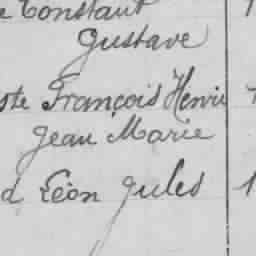 e Constant
Gustave
ste François Henri
Jean Marie
d Léon Jules